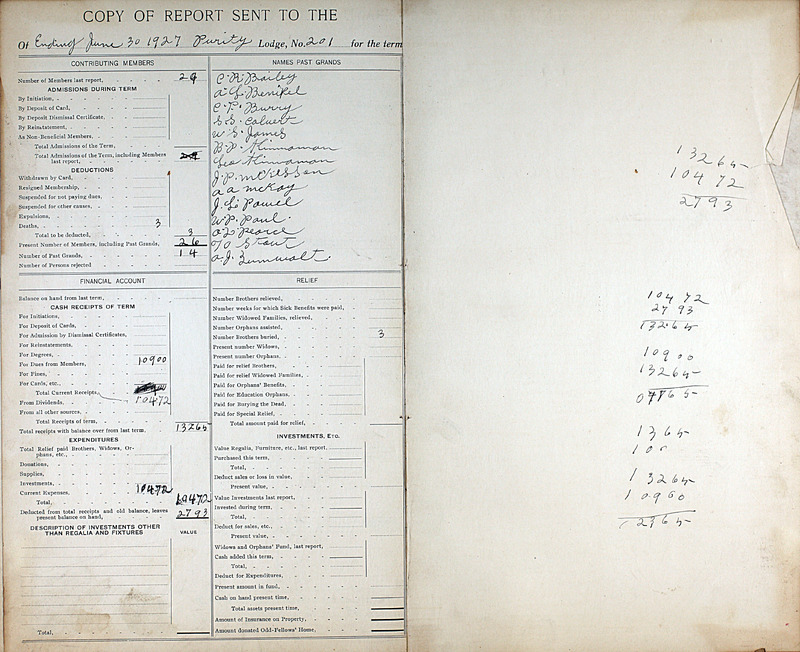 COPY OF REPORT SENT TO THE
Of Ending June 30 1927 Purity Lodge, No. 201 for the term
CONTRIBUTING MEMBERS
Number of Members last report, 29
ADMISSIONS DURING TERM
By Initiation,
By Deposit of Card,
By Deposit Dismissal Certificate,
By Reinstatement,
As Non-Beneficial Members,
Total Admissions of the Term,
Total Admissions of the Term, including Members
last report,
DEDUCTIONS
Withdrawn by Card,
Resigned Membership,
Suspended for not paying dues,
Suspended for other causes,
Expulsions,
Deaths, 3
Total to be deducted, 3
Present Number of Members, including Past Grands, 26
Number of Past Grands, 14
Number of Persons rejected
NAMES PAST GRANDS
C. R. Bailey
A. L. Benikel
C. T. Burry
S. S. Calvert
W. S. James
B. P. Kinnaman
Geo Kinnaman
J. P. McKisson
A A McKay
J. L. Powel
W. P. Paul.
O L Pearce
T O Stout
A. J. Zumwalt.
FINANCIAL ACCOUNT
Balance on hand from last term,
CASH RECEIPTS OF TERM
For Initiations,
For Deposit of Cards,
For Admission by Dismissal Certificates,
For Reinstatements,
For Degrees,
For Dues from Members, 10900
For Fines,
For Cards, etc.,
Total Current Receipts,
From Dividends, 10472
From all other sources,
Total Receipts of term,
Total receipts with balance over from last term, 13265
EXPENDITURES
Total Relief paid Brothers, Widows, Or-
phans, etc.,
Donations,
Supplies,
Investments,
Current Expenses, 10472
Total, 10472
Deducted from total receipts and old balance, leaves
present balance on hand, 2793
DESCRIPTION OF INVESTMENTS OTHER
THAN REGALIA AND FIXTURES VALUE
Total,
RELIEF
Number Brothers relieved,
Number weeks for which Sick Benefits were paid,
Number Widowed Families, relieved,
Number Orphans assisted,
Number Brothers buried, 3
Present number Widows,
Present number Orphans,
Paid for relief Brothers,
Paid for relief Widowed Families,
Paid for Orphans' Benefits,
Paid for Education Orphans,
Paid for Burying the Dead,
Paid for Special Relief,
Total amount paid for relief,
INVESTMENTS, ETC.
Value Regalia, Furniture, etc., last report,
Purchased this term,
Total,
Deduct sales or loss in value,
Present value,
Value Investments last report,
Invested during term,
Total,
Deduct for sales, etc.,
Present value,
Widows and Orphans' Fund, last report,
Cash added this term,
Total,
Deduct for Expenditures,
Present amount in fund,
Cash on hand present time,
Total assets present time,
Amount of Insurance on Property,
Amount donated Odd-Fellows' Home,
13265
10472
2793
10472
2793
13265
10900
13265
1365
13265
10900
2365